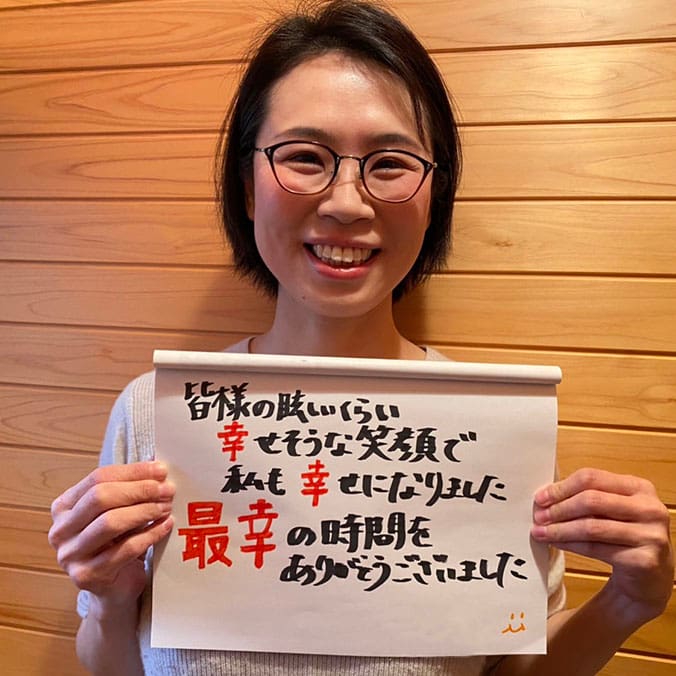 皆様の眩いくらい
幸せそうな笑顔で
私も幸せになりました
最幸の時間を
ありがとうございました